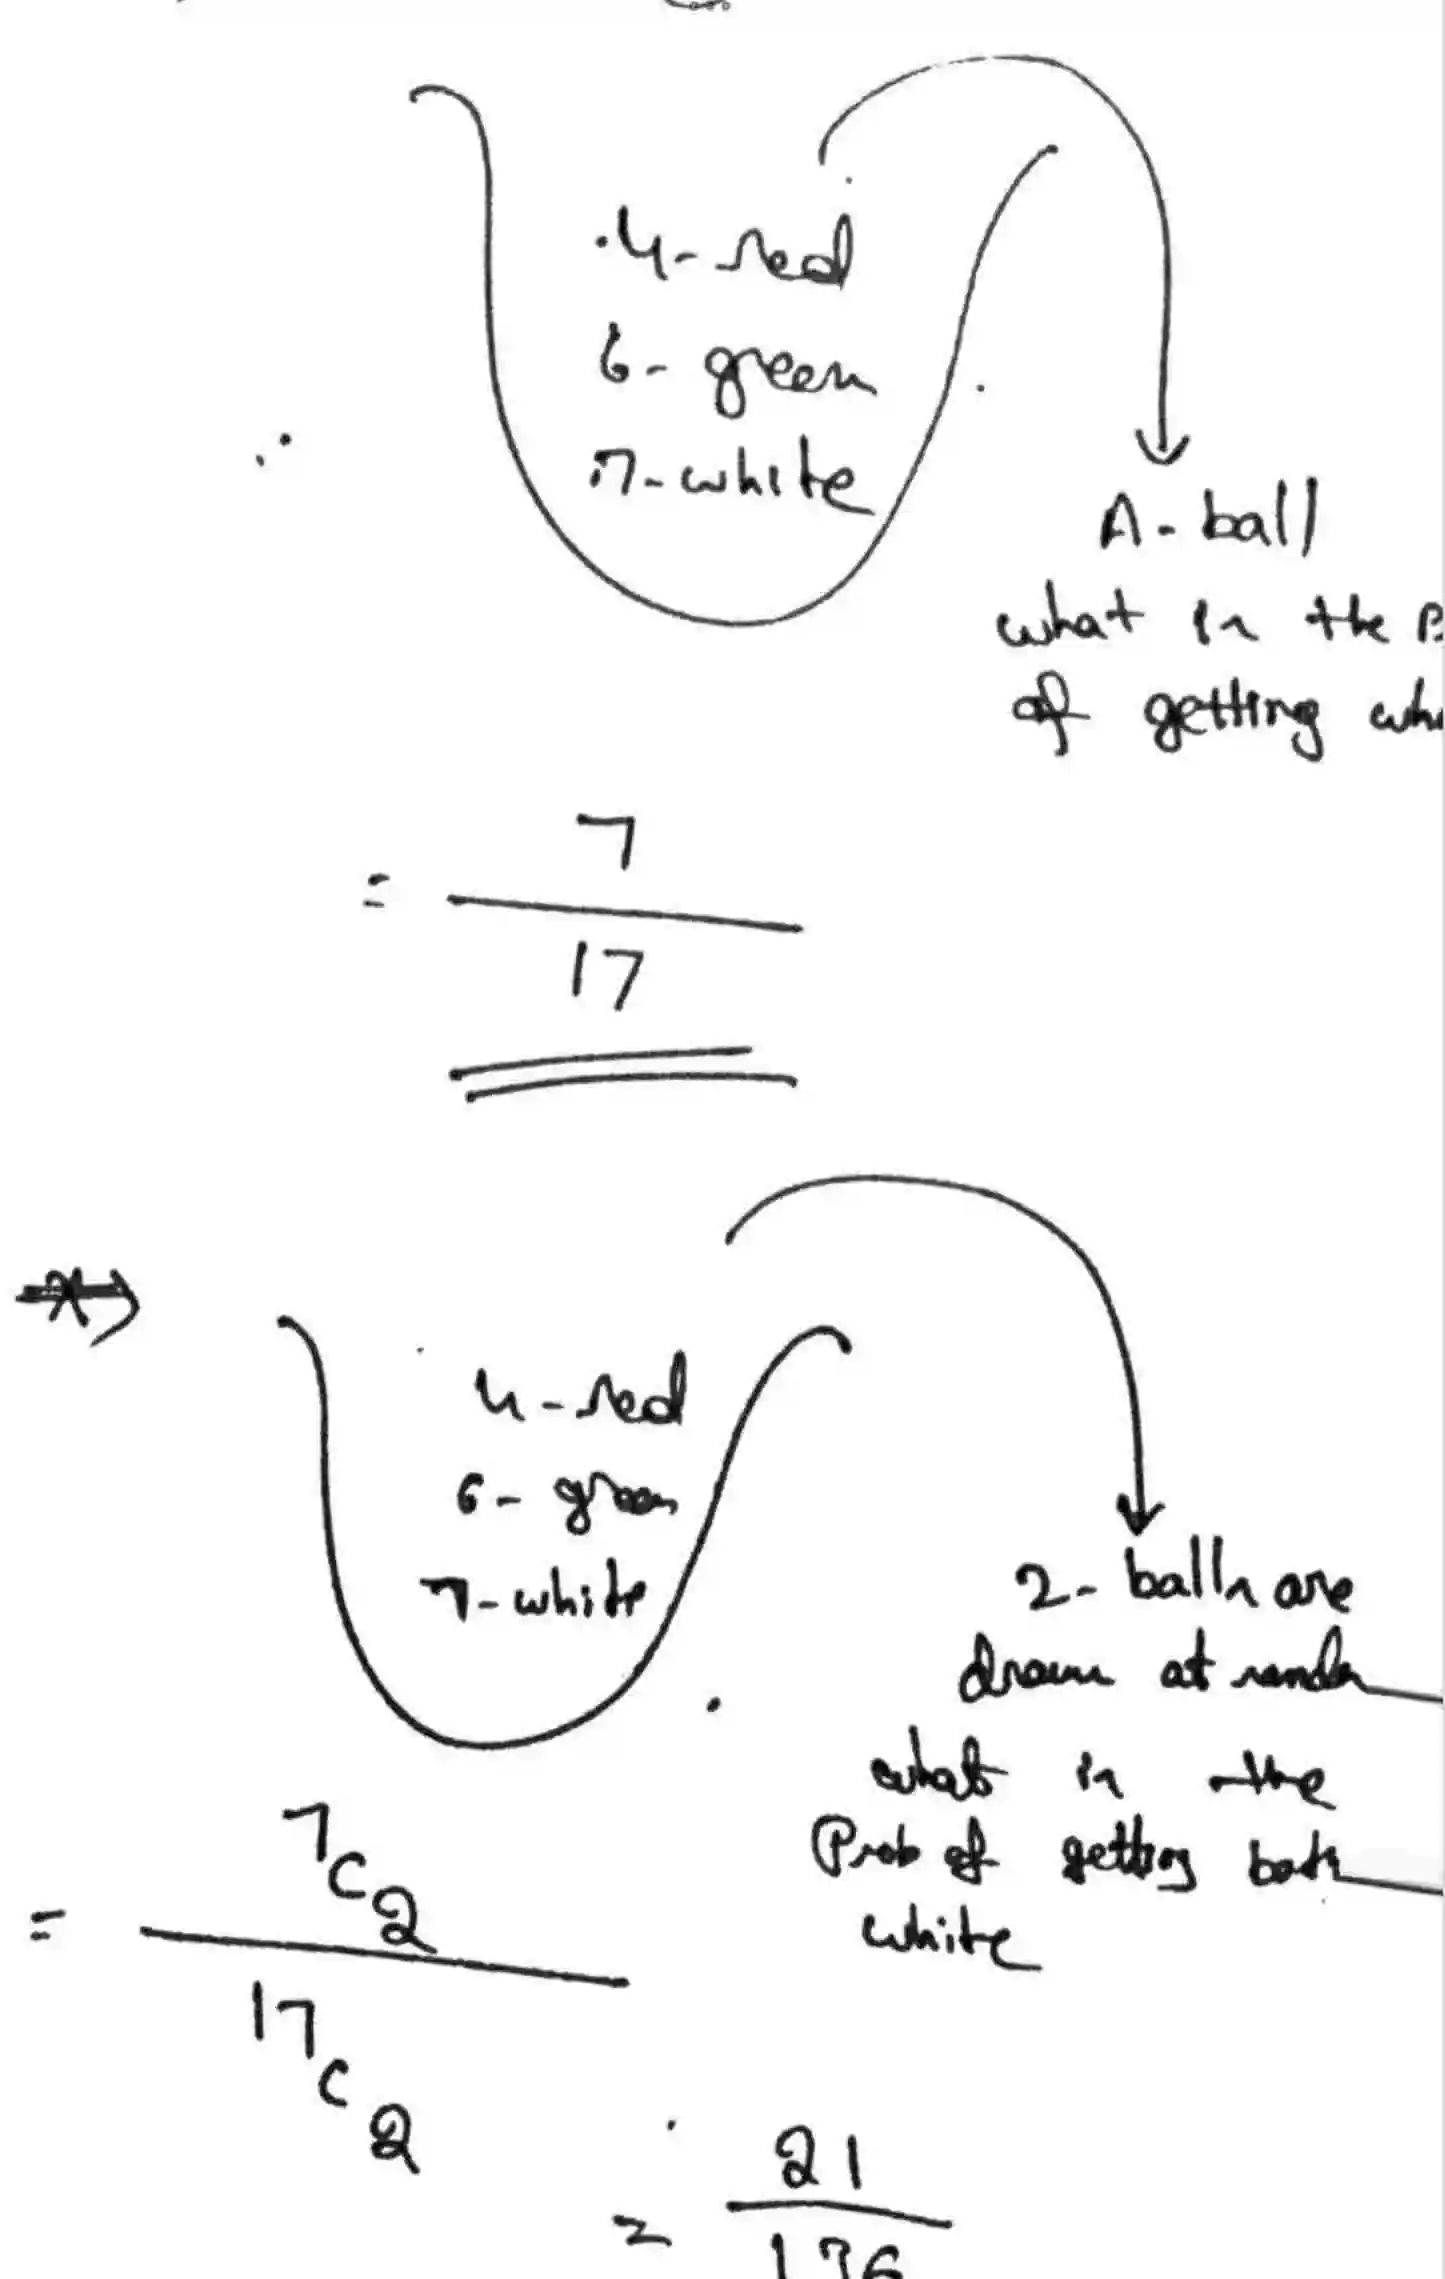 4- red
6- green
7- white
A- ball
what is the
of getting
= 7
17
4 - red
6 - green
7 - white
2- balls are
drawn at
what is the
Prob of getting both
white
= 7c2
17c2
= 21
136